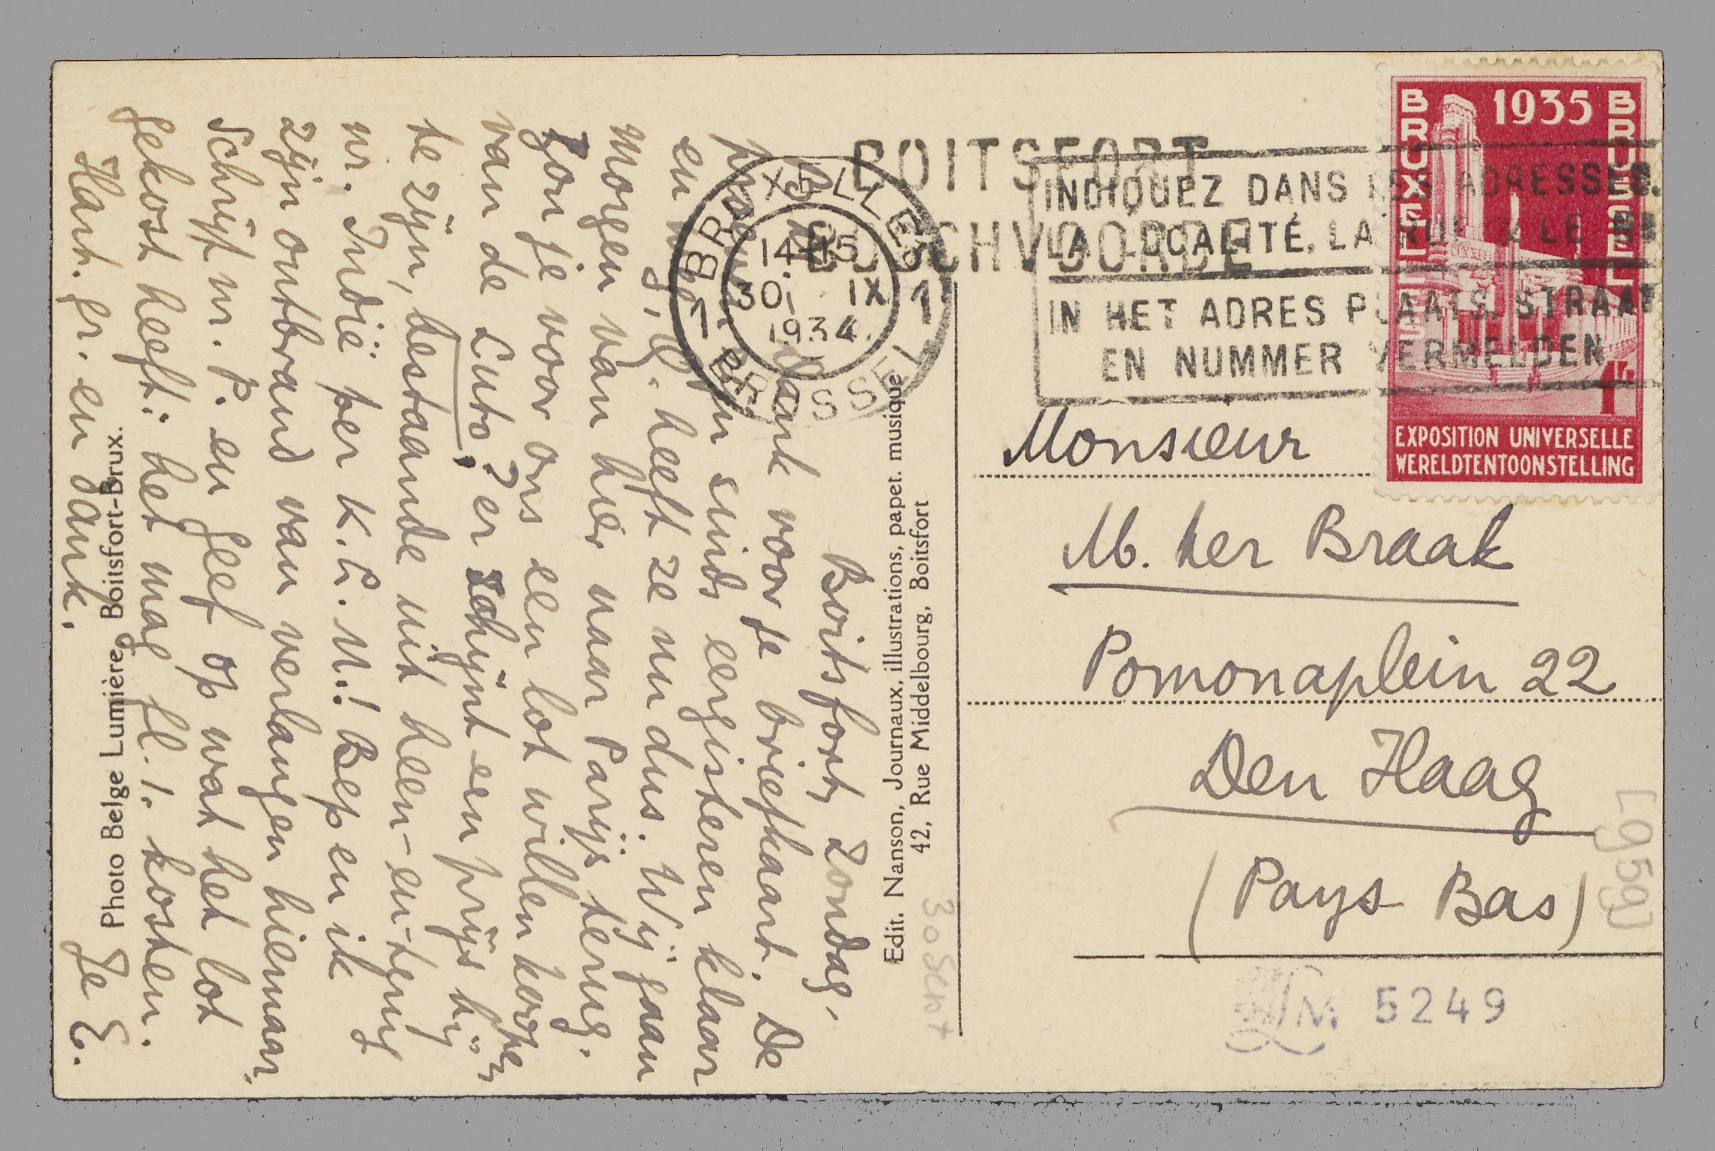 Boitsfort, Zondag.
dank voor je briefkaart. De
zijn sinds eergisteren klaar
en heeft ze nu dus. Wij gaan
morgen van hier naar Parijs terug.
Zou je voor ons een lot willen koopen
van de Luto? er schijnt een prijs bij
te zijn, bestaande uit heen-en-terug
nr. Indië per K.L.M.! Bep en ik
zijn ontbrand van verlangen hiernaar.
Schrijf nr. P. en geef op wat het lot
gekost heeft: het mag fl. 1. kosten.
Hart. gr. en dank.
Je E.
Photo Belge Lumière, Boitsfort-Brux.
Edit. Nanson, Journaux, illustrations, papet. musique
42, Rue Middelbourg, Boitsfort
30 Sept
BOITSFORT
BOSCHVOORDE
BRUXELLES
1 1
14-15
30 IX
1934
BRUSSEL
INDIQUEZ DANS LES ADRESSES.
LA LOCALITÉ, LA RUE & LE
IN HET ADRES PLAATS, STRAAT
EN NUMMER VERMELDEN
1935
BRUXELLES
BRUSSEL
1 Fr
EXPOSITION UNIVERSELLE
WERELDTENTOONSTELLING
Monsieur
M. ter Braak
Pomonaplein 22
Den Haag
(Pays Bas)
[959]
LM 5249